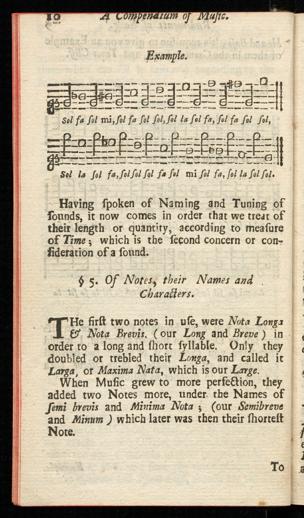 10 A Compendium of Musick.
Example.
Sol fa sol mi, fa sol sol, sol la sol fa, sol fa sol sol,
Sol la sol fa, sol sol sol fa sol mi sol fa, sol la sol sol.
Having spoken of Naming and Tuning of
sounds, it now comes in order that we treat of
their length or quantity, according to measure
of Time; which is the second concern or con-
sideration of a sound.
§ 5. Of Notes, their Names and
Characters.
THe first two notes in use, were Nota Longa
& Nota Brevis, (our Long and Breve) in
order to a long and short syllable. Only they
doubled or trebled their Longa, and called it
Larga, or Maxima Nata, which is our Large.
When Music grew to more perfection, they
added two Notes more, under the Names of
semi brevis and Minima Nota; (our Semibreve
and Minum) which later was then their shortest
Note.
To